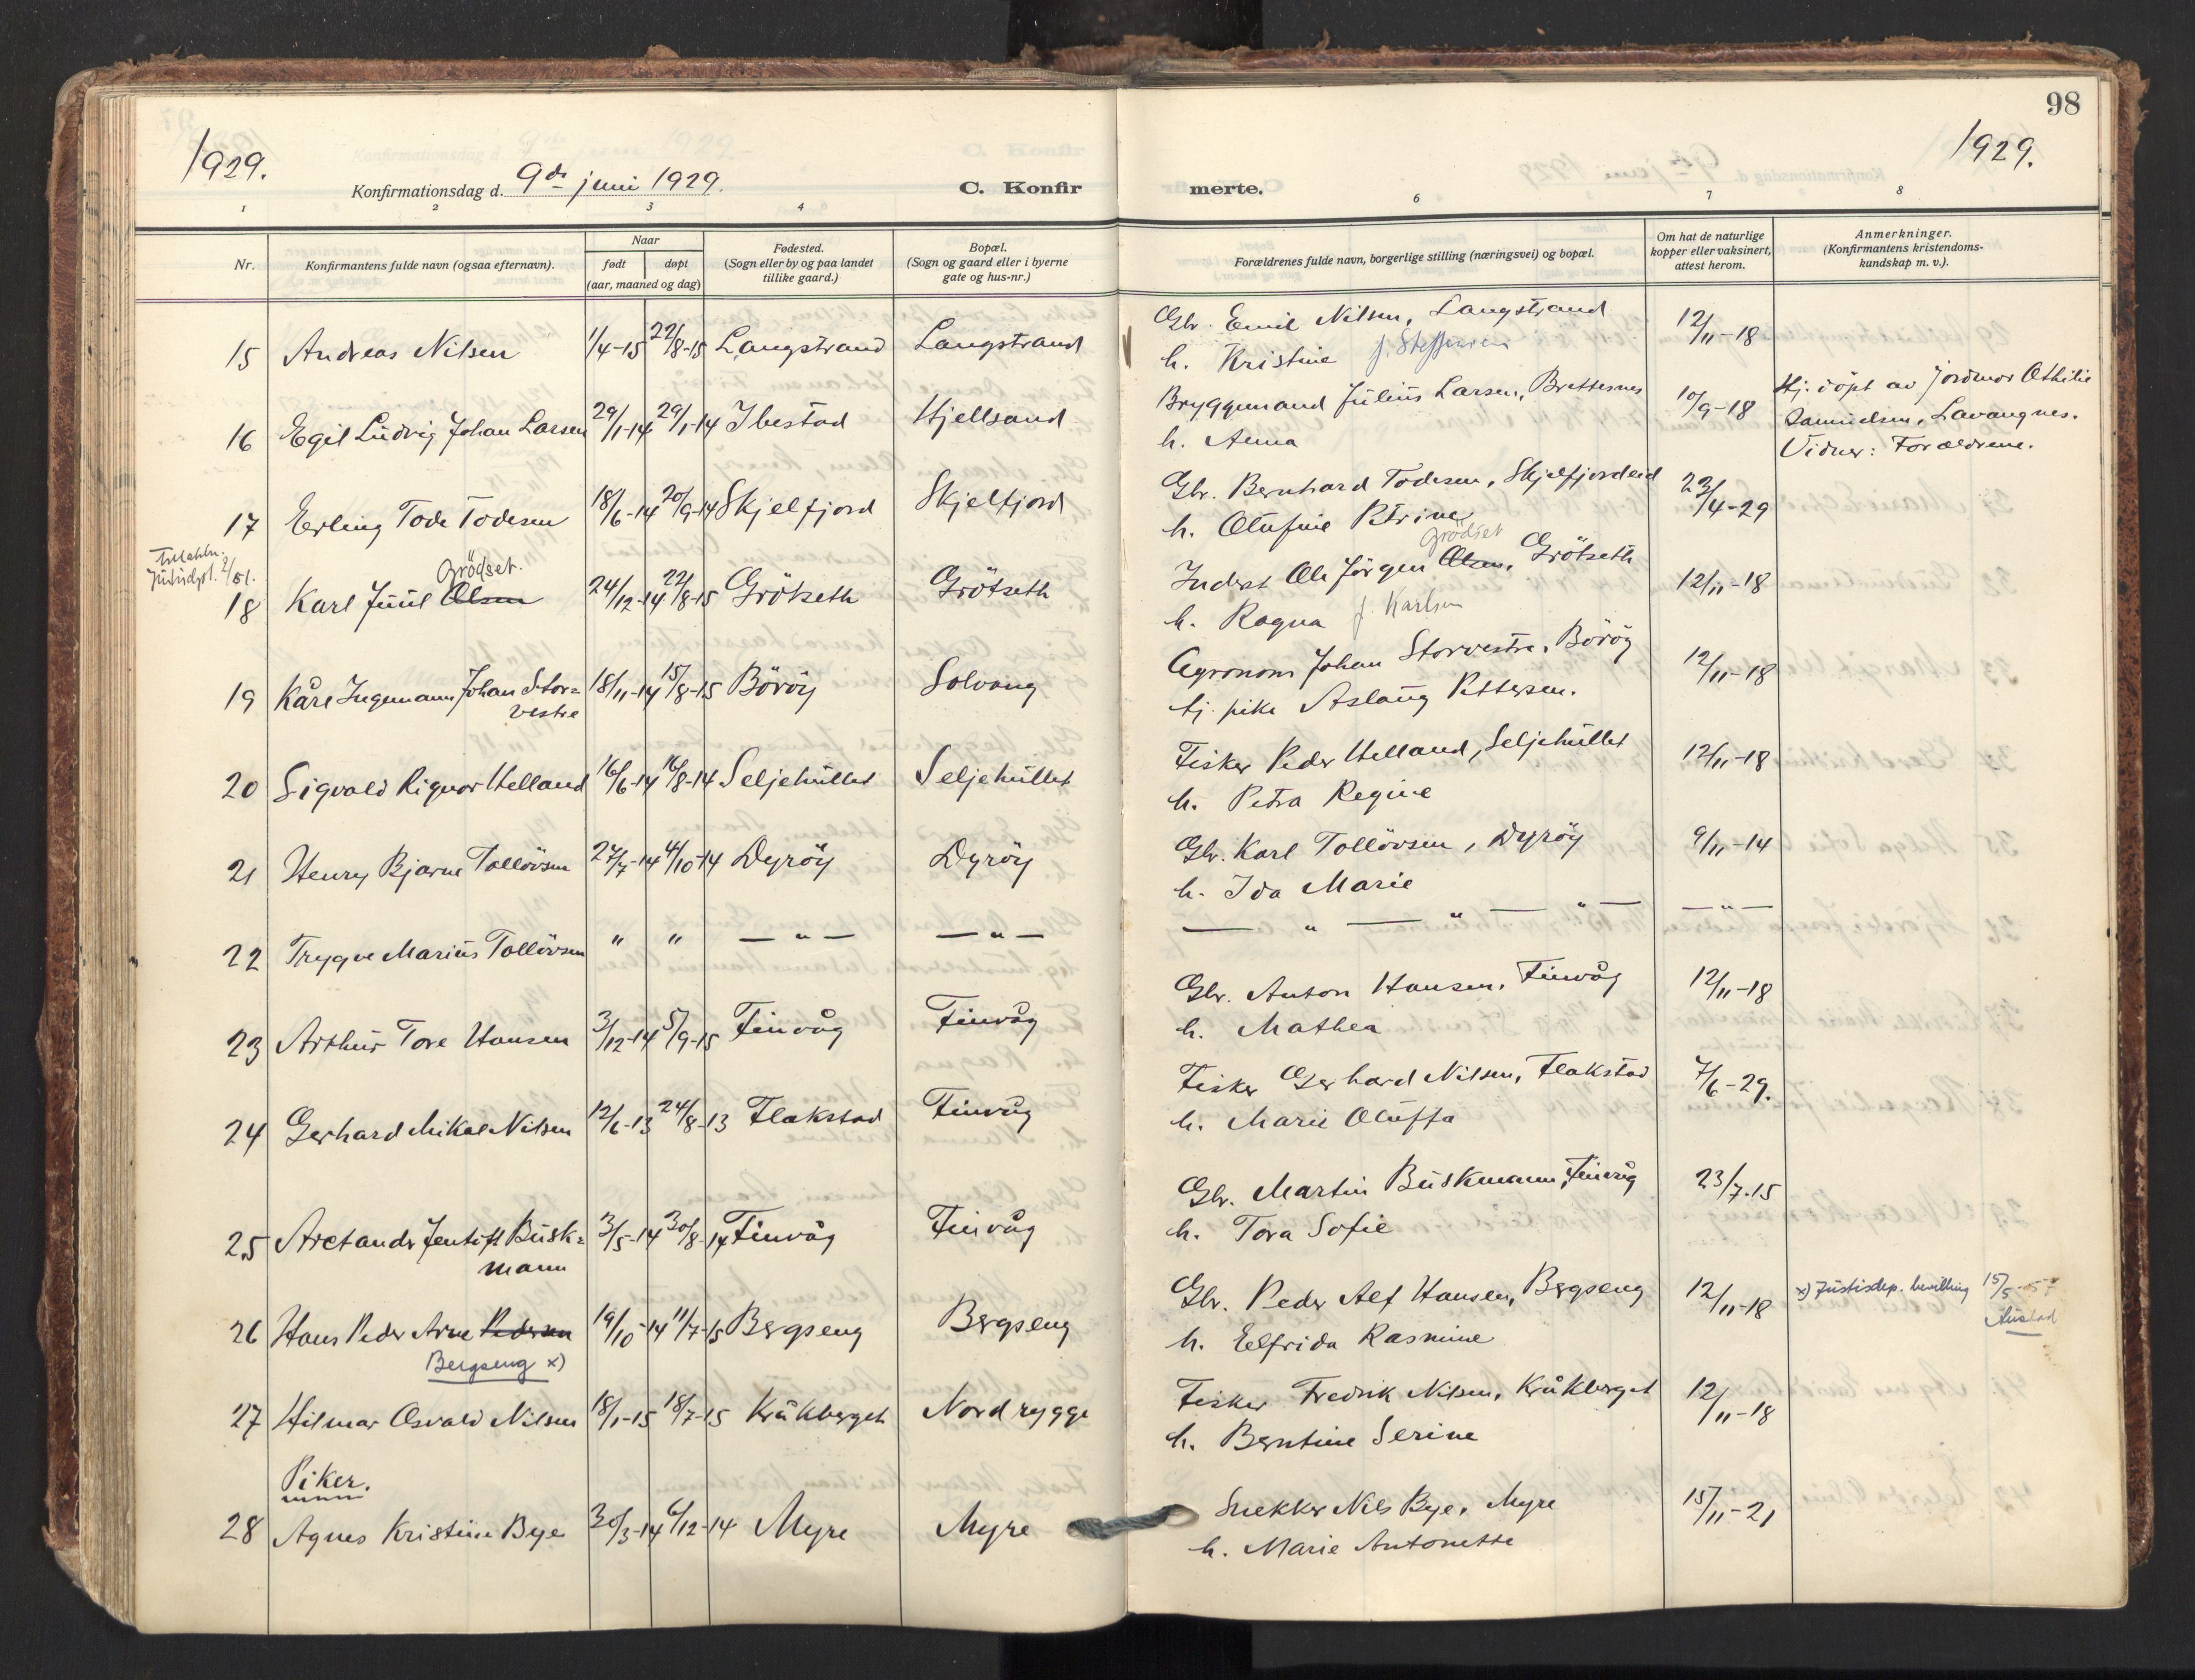 98
1929.
1929.
Konfirmationsdag d. 9de juni 1929.
C. Konfirmerte.
1 2 3 4 6 7 8
Nr.
Konfirmantens fulde navn (ogsaa efternavn).
Naar
født døpt
(aar, maaned og dag)
Fødested.
(Sogn eller by og paa landet
tillike gaard.)
Bopæl.
(Sogn og gaard eller i byerne
gate og hus-nr.)
Forældrenes fulde navn, borgerlige stilling (næringsvei) og bopæl.
Om hat de naturlige
kopper eller vaksinert,
attest herom.
Anmerkninger.
(Konfirmantens kristendoms-
kundskap m. v.).
15 Andreas Nilsen 1/4-15 22/8-15 Langstrand Langstrand
Gbr. Emil Nilsen, Langstrand 12/11-18
h. Kristine f. Steffensen
16 Egil Ludvig Johan Larsen 29/1-14 29/1-14 Ibestad Hjellsand
Bryggemand Julius Larsen, Brettesnes 10/9-18
h. Anna
Hj. döpt av jordmor Othilie
Samuelsen, Lavangnes.
Vidner: Forældrene.
17 Erling Tode Todesen 18/6-14 20/9-14 Skjelfjord Skjelfjord
Gbr. Bernhard Todesen, Skjelfjordeid 23/4-29
h. Olufine Petrine
2/51.
Grödset.
18 Karl Juul Olsen 24/12-14 22/8-15 Grötseth Grötseth
Grödset
Inderst Ole Jörgen Olsen, Grötseth 12/11-18
h. Ragna f. Karlsen
19 Kåre Ingemann Johan Stor=
vestre 18/11-14 15/8-15 Böröy Solvang
Agronom Johan Storvestre, Böröy 12/11-18
tj. pike Aslaug Pettersen.
20 Sigvald Rignor Helland 16/6-14 16/8-14 Seljehullet Seljehullet
Fisker Peder Helland, Seljehullet 12/11-18
h. Petra Regine
21 Henry Bjarne Tollövsen 27/7-14 4/10-14 Dyröy Dyröy
Gbr. Karl Tollövsen, Dyröy 9/11-14
h. Ida Marie
22 Trygve Marius Tollövsen " " — " — — " —
— " — " — " — — " —
23 Arthur Tore Hansen 3/12-14 5/9-15 Finvåg Finvåg
Gbr. Anton Hansen, Finvåg 12/11-18
h. Mathea
24 Gerhard Mikal Nilsen 12/6-13 24/8-13 Flakstad Finvåg
Fisker Gerhard Nilsen, Flakstad 7/6-29.
h. Marie Oluffa
25 Aretander Jentoft Busk=
mann 3/5-14 30/8-14 Finvåg Finvåg
Gbr. Martin Buskmann, Finvåg 23/7-15
h. Tora Sofie
26 Hans Peder Arne Pedersen 19/10-14 11/7-15 Bergseng Bergseng
Bergseng x)
Gbr. Peder Alf Hansen, Bergseng 12/11-18
h. Elfrida Rasmine
x) Justisdep. bevilling 15/5
27 Hilmar Osvald Nilsen 18/1-15 18/7-15 Kråkberget Nordrygge
Fisker Fredrik Nilsen, Kråkberget 12/11-18
h. Berntine Serine
Piker.
28 Agnes Kristine Bye 30/3-14 6/12-14 Myre Myre
Snekker Nils Bye, Myre 15/11-21
h. Marie Antonette